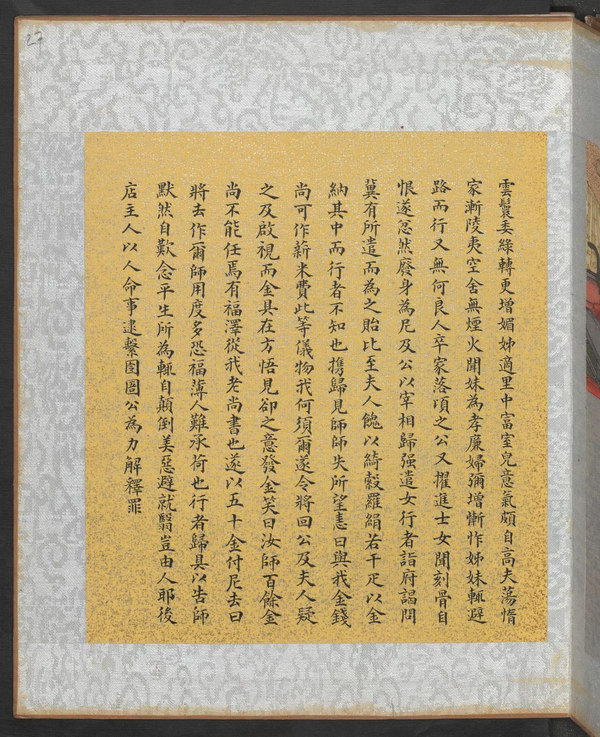 27
雲鬟委綠轉更增媚姊適里中富室兒意氣頗自高夫蕩惰
家漸陵夷空舍無煙火聞妹為孝廉婦彌增慚怍姊妹輒避
路而行又無何良人卒家落頃之公又擢進士女聞刻骨自
恨遂忽然廢身為尼及公以宰相歸强遣女行者詣府謁問
冀有所遣而為之貽比至夫人餽以綺縠羅絹若干疋以金
納其中而行者不知也攜歸見師師失所望恚曰與我金錢
尚可作薪米費此等儀物我何須爾遂令將回公及夫人疑
之及啟視而金具在方悟見卻之意發金笑曰汝師百餘金
尚不能任焉有福澤從我老尚書也遂以五十金付尼去曰
將去作爾師用度多恐福薄人難承荷也行者歸具以告師
默然自歎念平生所為輒自顛倒美惡避就繄豈由人耶後
店主人以人命事逮繫囹圄公為力解釋罪